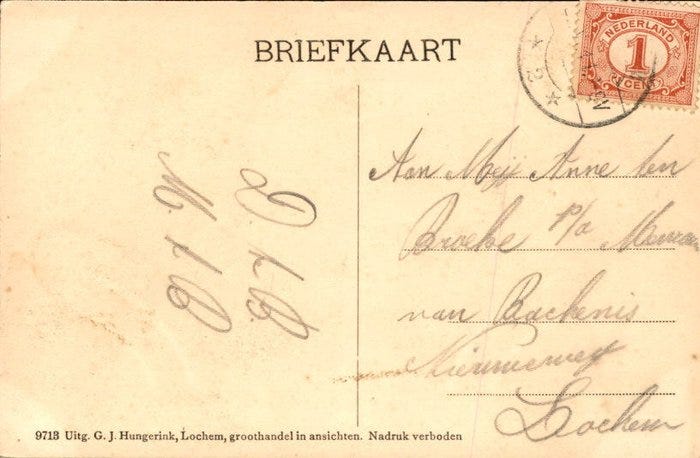 BRIEFKAART
NEDERLAND
1
CENT
Aan Mej Anne ten
Broeke p/a Mevrouw
van Bachenis
Nieuweweg
Lochem
9713 Uitg. G. J. Hungerink, Lochem, groothandel in ansichten. Nadruk verboden